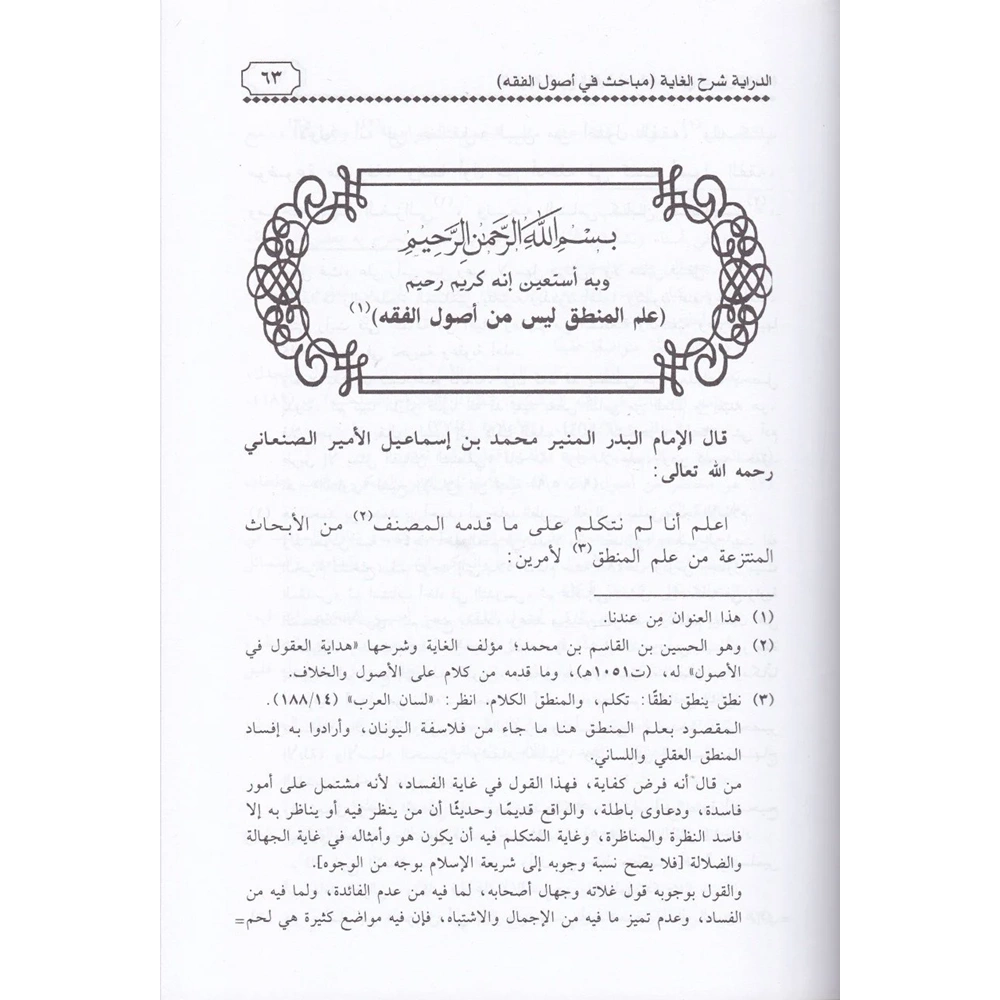 الدراية شرح الغاية (مباحث في أصول الفقه)
٦٣
بسم الله الرحمن الرحيم
وبه أستعين إنه كريم رحيم
(علم المنطق ليس من أصول الفقه)(١)
قال الإمام البدر المنير محمد بن إسماعيل الأمير الصنعاني
رحمه الله تعالى:
اعلم أنا لم نتكلم على ما قدمه المصنف(٢) من الأبحاث
المنتزعة من علم المنطق(٣) لأمرين:
(١) هذا العنوان مِن عندنا.
(٢) وهو الحسين بن القاسم بن محمد؛ مؤلف الغاية وشرحها «هداية العقول في
الأصول» له، (ت١٠٥١هـ)، وما قدمه من كلام على الأصول والخلاف.
(٣) نطق ينطق نطقًا: تكلم، والمنطق الكلام. انظر: «لسان العرب» (١٤/١٨٨).
المقصود بعلم المنطق هنا ما جاء من فلاسفة اليونان، وأرادوا به إفساد
المنطق العقلي واللساني.
من قال أنه فرض كفاية، فهذا القول في غاية الفساد، لأنه مشتمل على أمور
فاسدة، ودعاوى باطلة، والواقع قديمًا وحديثًا أن من ينظر فيه أو يناظر به إلا
فاسد النظرة والمناظرة، وغاية المتكلم فيه أن يكون هو وأمثاله في غاية الجهالة
والضلالة [فلا يصح نسبة وجوبه إلى شريعة الإسلام بوجه من الوجوه].
والقول بوجوبه قول غلاته وجهال أصحابه، لما فيه من عدم الفائدة، ولما فيه من
الفساد، وعدم تميز ما فيه من الإجمال والاشتباه، فإن فيه مواضع كثيرة هي لحم=